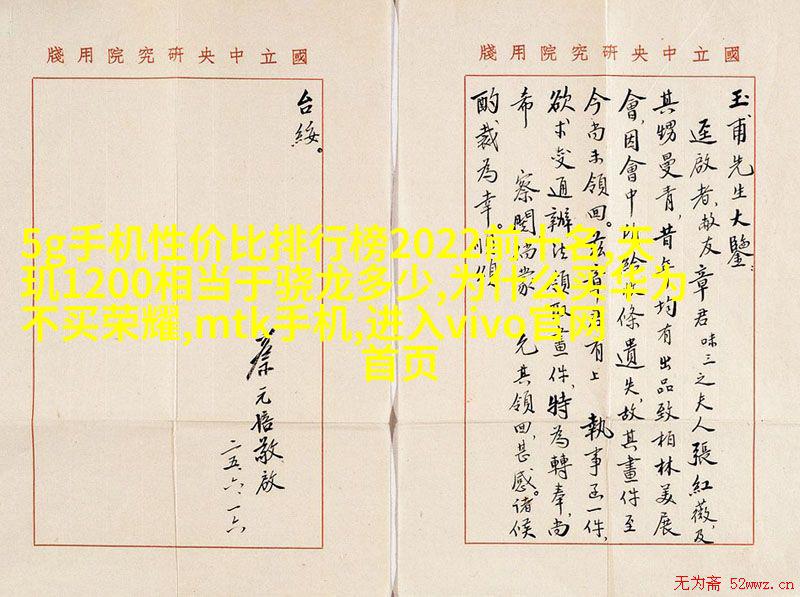 國立中央研究院用牋
玉甫先生大鑒
逕啟者,敝友章君味三之夫人張紅薇,及
其甥曼青,昔年均有出品致柏林美展
會,因會中給收條遺失,故其畫件至
今尚未領回。茲章君有上 執事函一件,
欲求變通辦法,領取畫件,特為轉奉,尚
希 察閱倘蒙 允其領回,甚感。諸候
酌裁為幸。順頌
國立中央研究院用牋
台綏。
蔡元培敬啟
二五、六、一六
5g手机性价比排行榜2022前十名,天
玑1200相当于骁龙多少,为什么买华为
不买荣耀,mtk手机,进入vivo官网
首页
无为斋 52wwz.cn